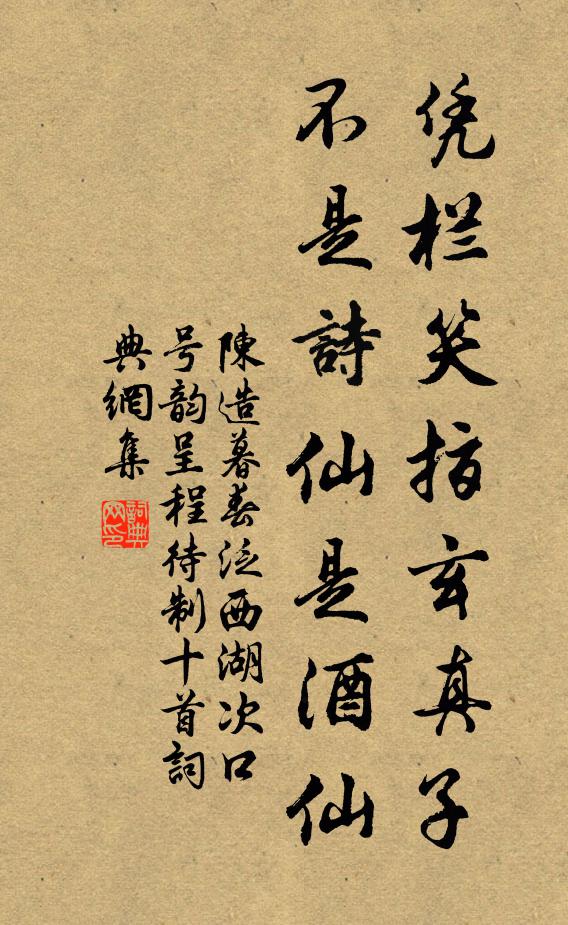 凭栏笑指玄真子
不是詩仙是酒仙
陳造暮春泛西湖次口
号韵呈程待制十首詞
典網集
詞典
网印